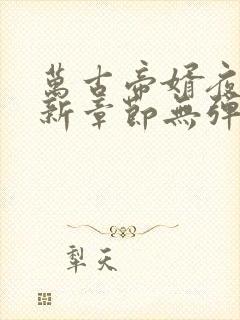 萬古帝婿夜
新章節無彈
犁天